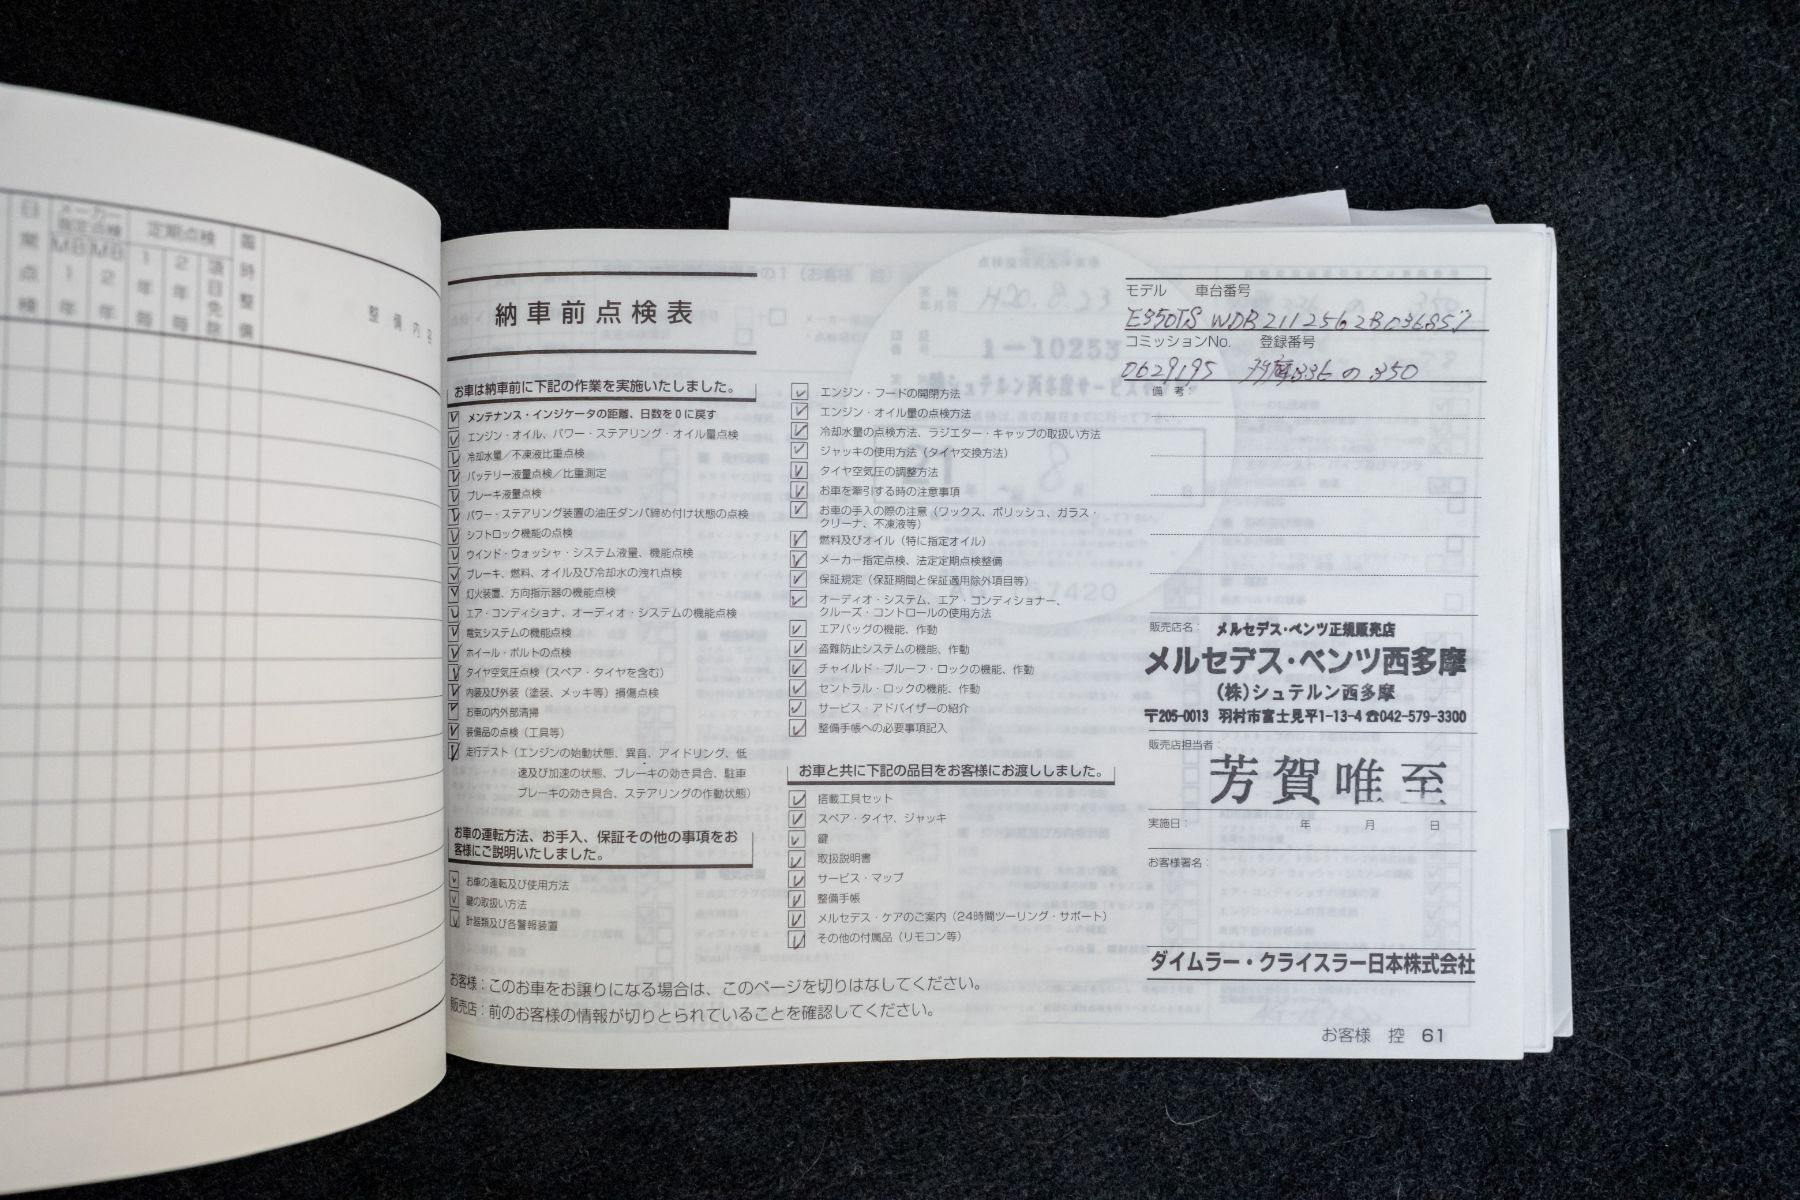 日業点検
メーカー指定点検
MB1年
MB2年
定期点検
1年毎
2年毎
項目免除
臨時整備
整備内容
納車前点検表
お車は納車前に下記の作業を実施いたしました。
メンテナンス・インジケータの距離、日数を0に戻す
エンジン・オイル、パワー・ステアリング・オイル量点検
冷却水量／不凍液比重点検
バッテリー液量点検／比重測定
ブレーキ液量点検
パワー・ステアリング装置の油圧ダンパ締め付け状態の点検
シフトロック機能の点検
ウインド・ウォッシャ・システム液量、機能点検
ブレーキ、燃料、オイル及び冷却水の洩れ点検
灯火装置、方向指示器の機能点検
エア・コンディショナ、オーディオ・システムの機能点検
電気システムの機能点検
ホイール・ボルトの点検
タイヤ空気圧点検（スペア・タイヤを含む）
内装及び外装（塗装、メッキ等）損傷点検
お車の内外部清掃
装備品の点検（工具等）
走行テスト（エンジンの始動状態、異音、アイドリング、低
速及び加速の状態、ブレーキの効き具合、駐車
ブレーキの効き具合、ステアリングの作動状態）
お車の運転方法、お手入、保証その他の事項をお
客様にご説明いたしました。
お車の運転及び使用方法
鍵の取扱い方法
計器類及び各警報装置
エンジン・フードの開閉方法
エンジン・オイル量の点検方法
冷却水量の点検方法、ラジエター・キャップの取扱い方法
ジャッキの使用方法（タイヤ交換方法）
タイヤ空気圧の調整方法
お車を牽引する時の注意事項
お車の手入の際の注意（ワックス、ポリッシュ、ガラス・
クリーナ、不凍液等）
燃料及びオイル（特に指定オイル）
メーカー指定点検、法定定期点検整備
保証規定（保証期間と保証適用除外項目等）
オーディオ・システム、エア・コンディショナー、
クルーズ・コントロールの使用方法
エアバッグの機能、作動
盗難防止システムの機能、作動
チャイルド・プルーフ・ロックの機能、作動
セントラル・ロックの機能、作動
サービス・アドバイザーの紹介
整備手帳への必要事項記入
お車と共に下記の品目をお客様にお渡ししました。
搭載工具セット
スペア・タイヤ、ジャッキ
鍵
取扱説明書
サービス・マップ
整備手帳
メルセデス・ケアのご案内（24時間ツーリング・サポート）
その他の付属品（リモコン等）
モデル 車台番号
E350TS WDB2112562B036857
コミッションNo. 登録番号
0629195 336 の 350
備考：
販売店名： メルセデス・ベンツ正規販売店
メルセデス・ベンツ西多摩
（株）シュテルン西多摩
〒205-0013 羽村市富士見平1-13-4 ☎042-579-3300
販売店担当者：
芳賀唯至
実施日： 年 月 日
お客様署名：
ダイムラー・クライスラー日本株式会社
お客様：このお車をお譲りになる場合は、このページを切りはなしてください。
販売店：前のお客様の情報が切りとられていることを確認してください。
お客様 控 61